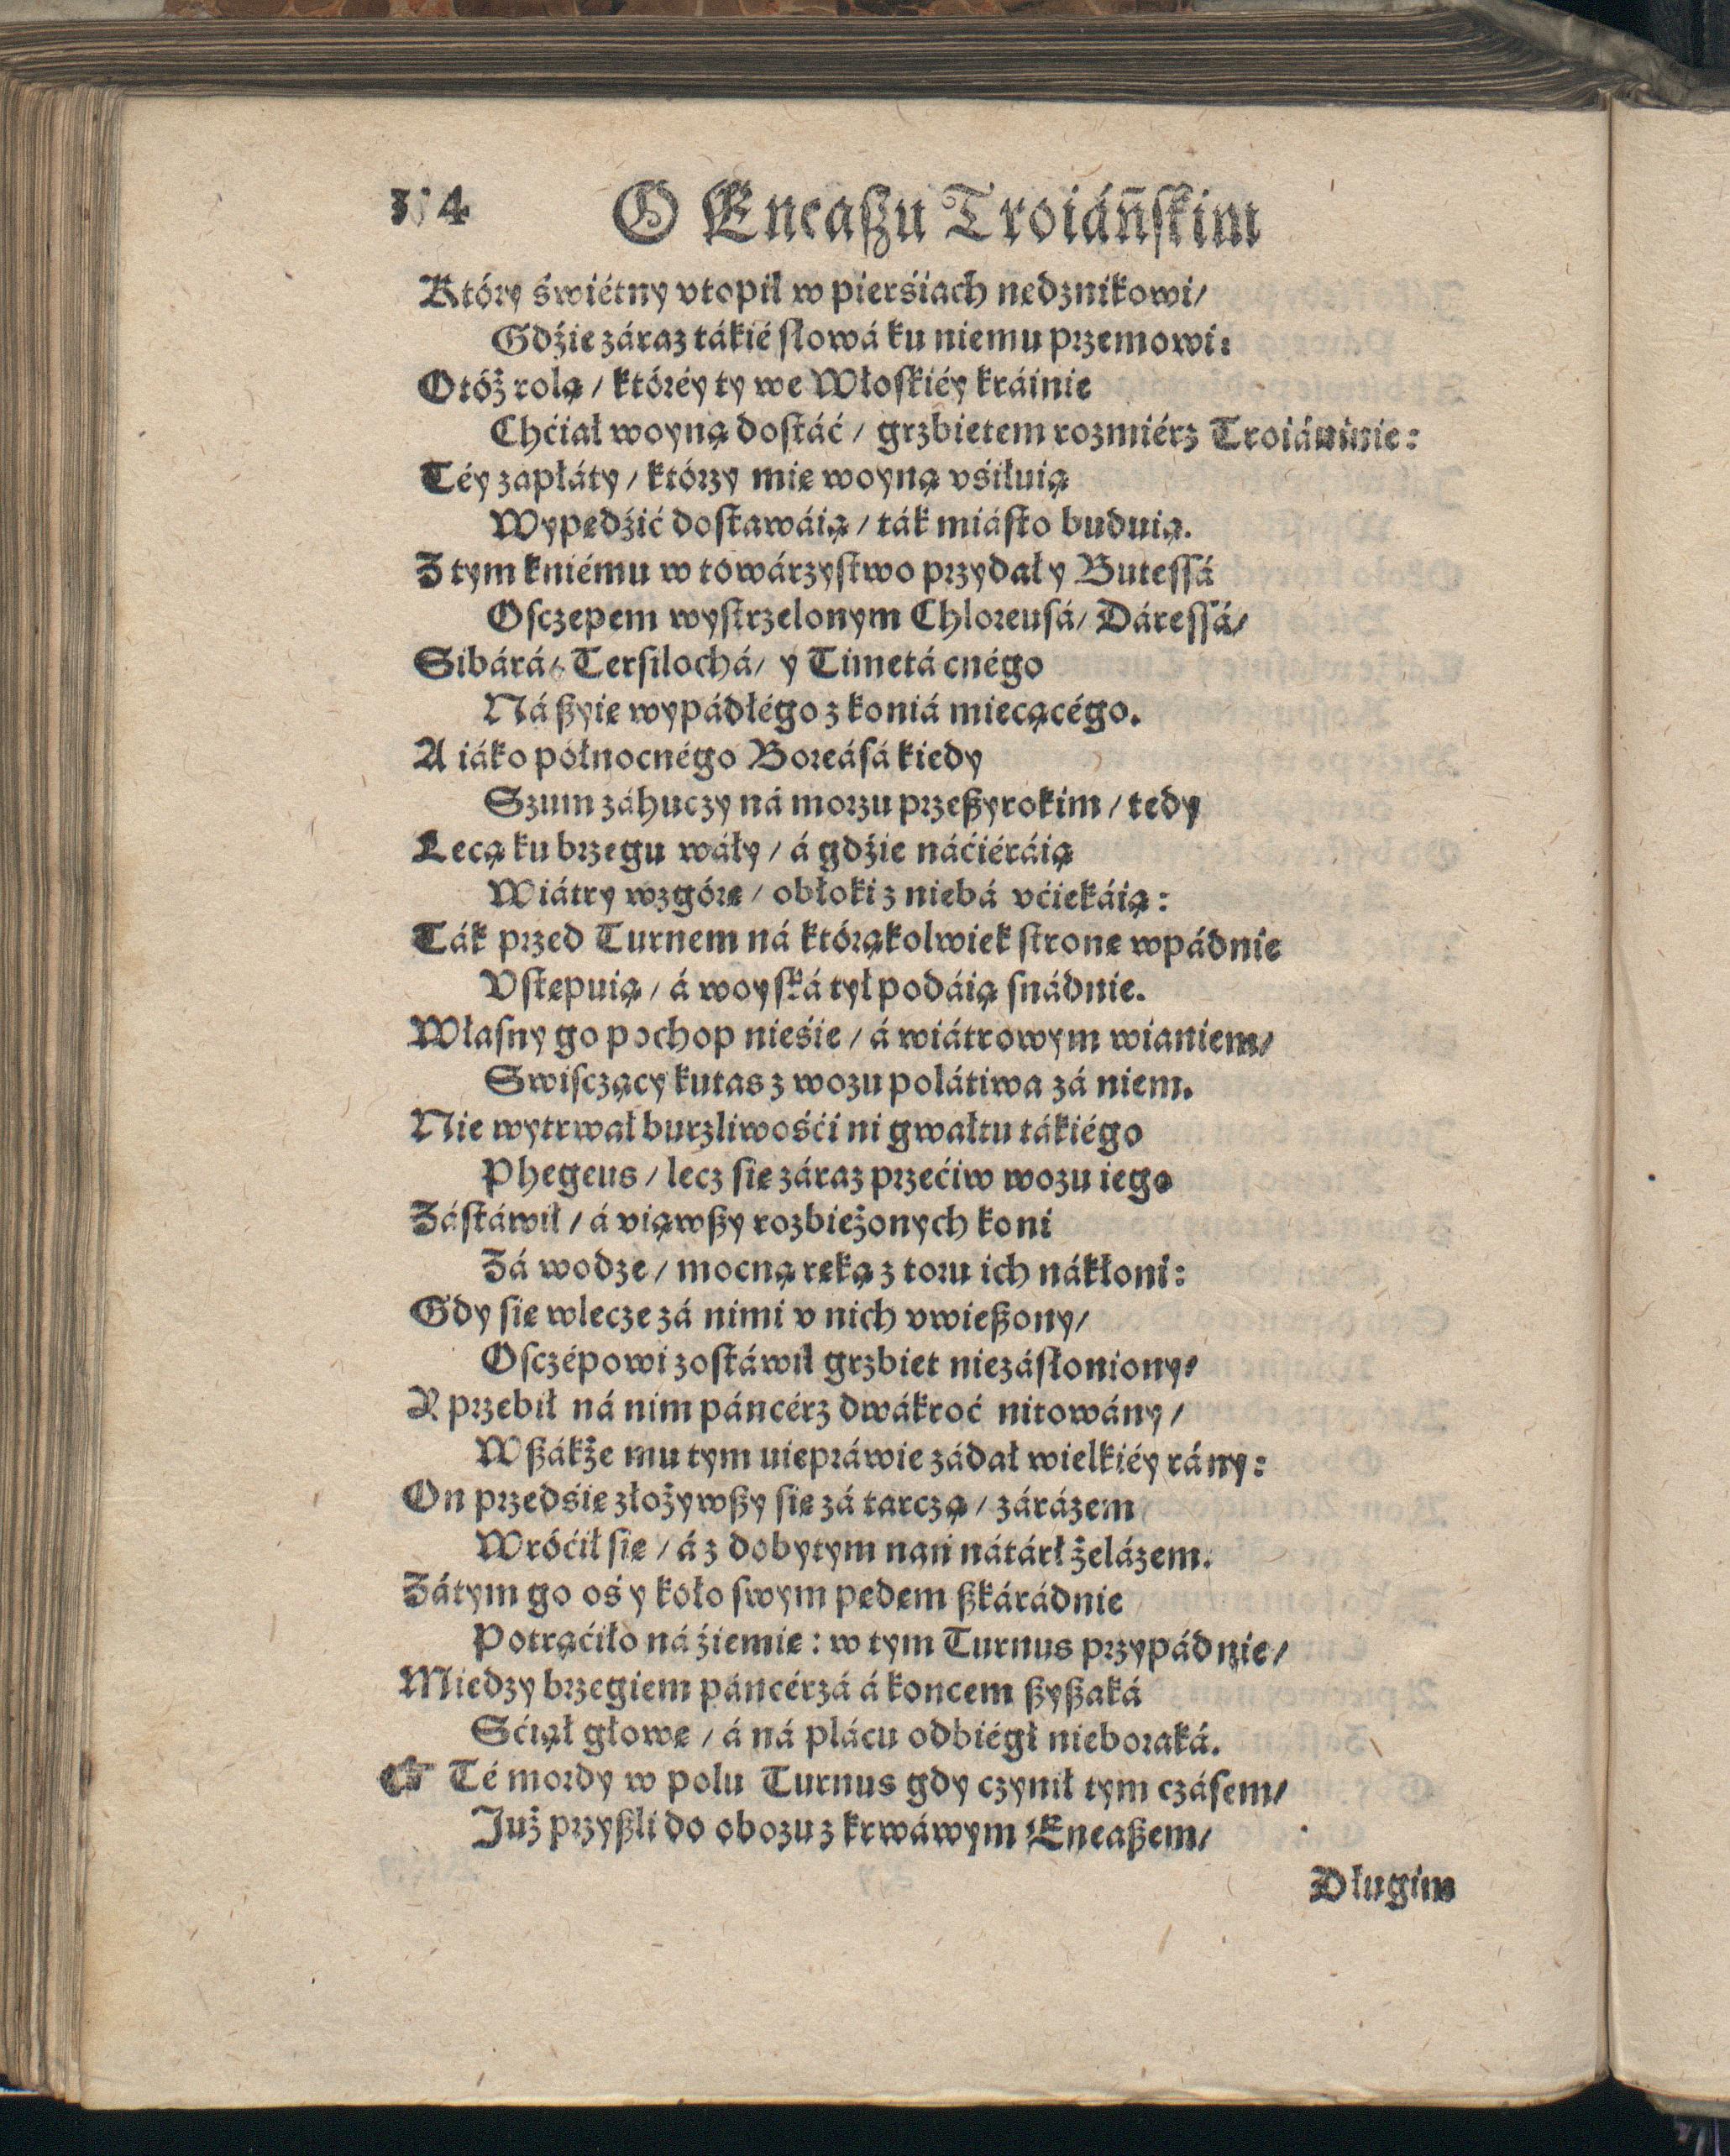 O Eneaßu Troiáńſkim
Który świétny vtopił w pierśiach nędznikowi/
Gdźie záraz tákié ſłowá ku niemu przemowi:
Otóż rolą / któréy ty we Włoſkiéy kráinie
Chćiał woyną doſtáć / grzbietem rozmiérz Troiáninie:
Téy zapłáty / którzy mię woyną vśiłuią
Wypędźić doſtawáią / ták miáſto buduią.
Z tym kniému w towárzyſtwo przydał y Buteſſá
Oſczepem wyſtrzelonym Chloreuſá/ Dáreſſá/
Sibárá/ Terſilochá/ y Timetá cnégo
Ná ßyię wypádłégo z koniá miecącégo.
A iáko północnégo Boreáſá kiedy
Szum záhuczy ná morzu przeßyrokim / tedy
Lecą ku brzegu wáły / á gdźie náćiéráią
Wiátry wzgórę / obłoki z niebá vćiekáią:
Ták przed Turnem ná którąkolwiek ſtronę wpádnie
Vſtępuią / á woyſká tył podáią ſnádnie.
Właſny go pochop nieśie / á wiátrowym wianiem/
Swiſczący kutas z wozu polátiwa zá niem.
Nie wytrwał burzliwośći ni gwałtu tákiégo
Phegeus / lecz ſię záraz przećiw wozu iego
Záſtáwił / á viąwßy rozbieżonych koni
Zá wodze / mocną ręką z toru ich nákłoni:
Gdy ſię wlecze zá nimi v nich vwießony/
Oſczépowi zoſtáwił grzbiet niezáſłoniony/
Y przebił ná nim páncérz dwákroć nitowány /
Wßákże mu tym niepráwie zádał wielkiéy rány:
On przedśię złożywßy ſię zá tarczą / zárázem
Wróćił ſię / á z dobytym nań nátárł żelázem.
Zátym go oś y koło ſwym pędem ßkárádnie
Potrąćiło ná źiemię: w tym Turnus przypádnie/
Miedzy brzegiem páncérzá á koncem ßyßaká
Sćiął głowę / á ná plácu odbiégł nieboraká.
☞ Té mordy w polu Turnus gdy czynił tym czáſem/
Już przyßli do obozu z krwáwym Eneaßem/
Długim